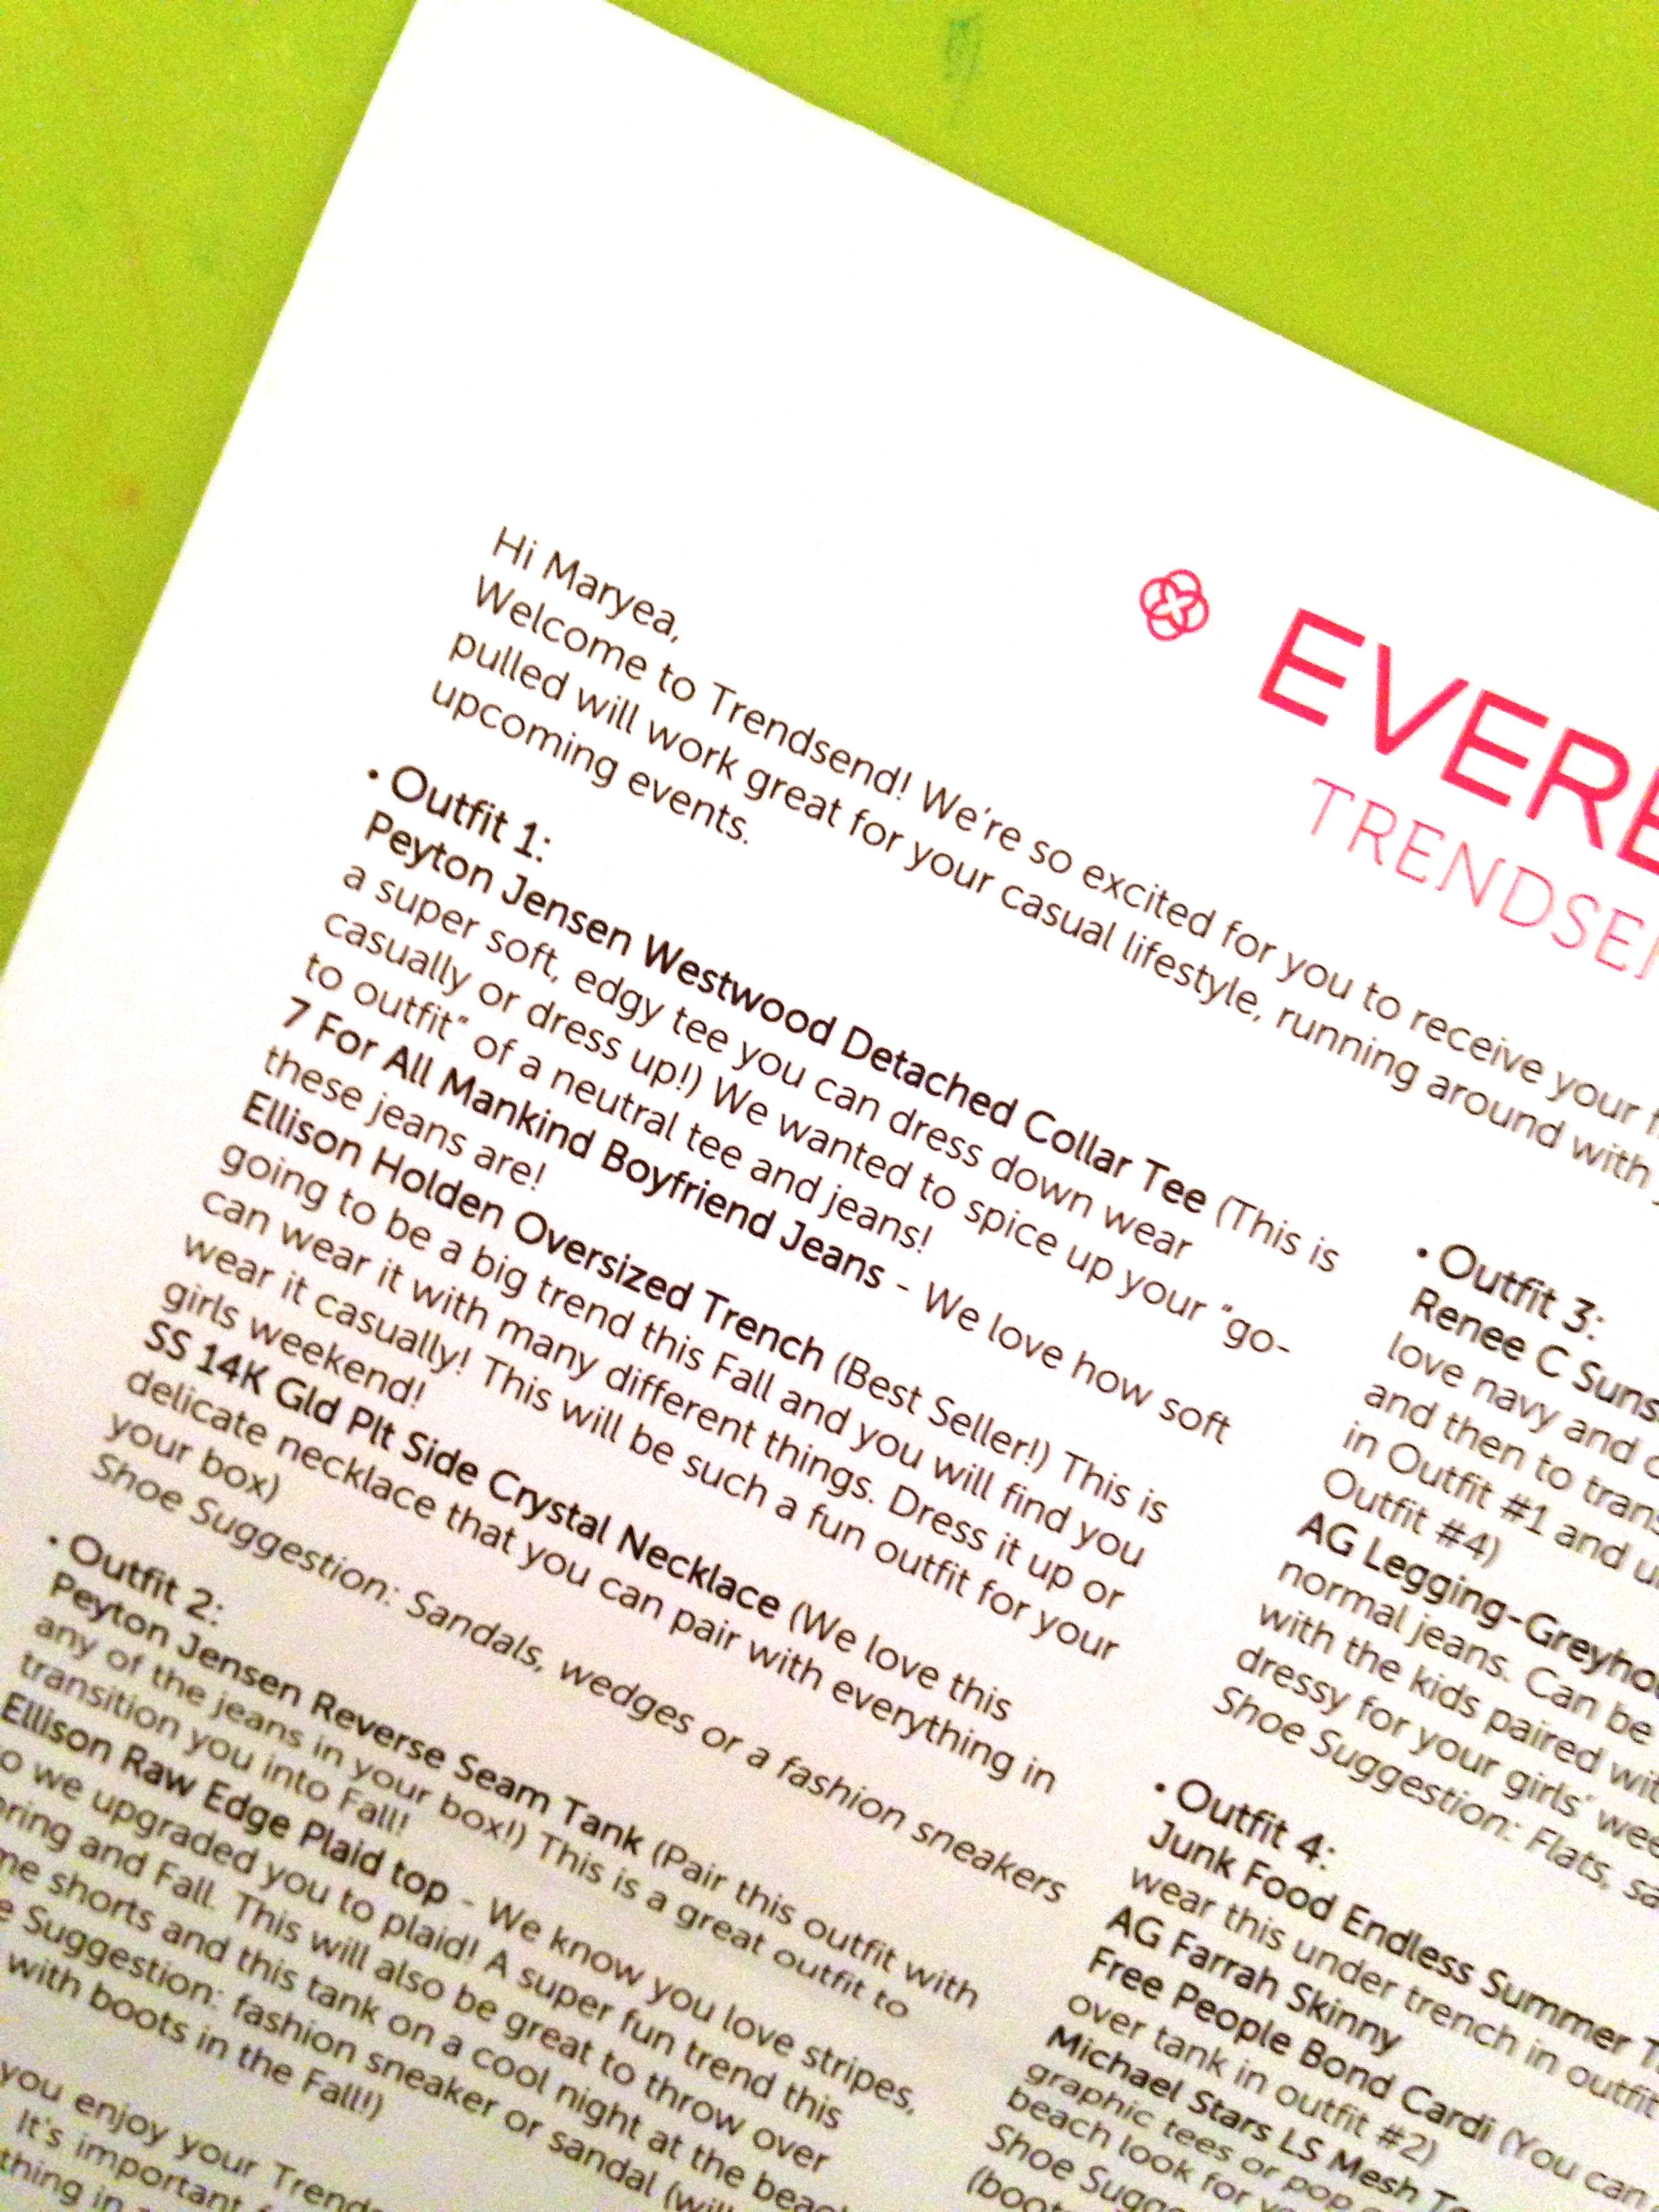 EVERE
TRENDSEN
Hi Maryea,
Welcome to Trendsend! We're so excited for you to receive your
pulled will work great for your casual lifestyle, running around with
upcoming events.
• Outfit 1:
Peyton Jensen Westwood Detached Collar Tee (This is
a super soft, edgy tee you can dress down wear
casually or dress up!) We wanted to spice up your "go-
to outfit" of a neutral tee and jeans!
7 For All Mankind Boyfriend Jeans - We love how soft
these jeans are!
Ellison Holden Oversized Trench (Best Seller!) This is
going to be a big trend this Fall and you will find you
can wear it with many different things. Dress it up or
wear it casually! This will be such a fun outfit for your
girls weekend!
SS 14K Gld Plt Side Crystal Necklace (We love this
delicate necklace that you can pair with everything in
your box)
Shoe Suggestion: Sandals, wedges or a fashion sneakers
• Outfit 2:
Peyton Jensen Reverse Seam Tank (Pair this outfit with
any of the jeans in your box!) This is a great outfit to
transition you into Fall!
Ellison Raw Edge Plaid top - We know you love stripes,
so we upgraded you to plaid! A super fun trend this
pring and Fall. This will also be great to throw over
me shorts and this tank on a cool night at the beac
e Suggestion: fashion sneaker or sandal (will
with boots in the Fall!)
you enjoy your Trends
It's important
thing in
• Outfit 3:
Renee C Suns
love navy and
and then to trans
in Outfit #1 and
Outfit #4)
AG Legging-Greyhou
normal jeans. Can be
with the kids paired wit
dressy for your girls' wee
Shoe Suggestion: Flats, sa
• Outfit 4:
Junk Food Endless Summer T
wear this under trench in outfit
AG Farrah Skinny
Free People Bond Cardi (You can
over tank in outfit #2)
Michael Stars LS Mesh
graphic tees or pop
beach look for
Shoe Sugge
(boot